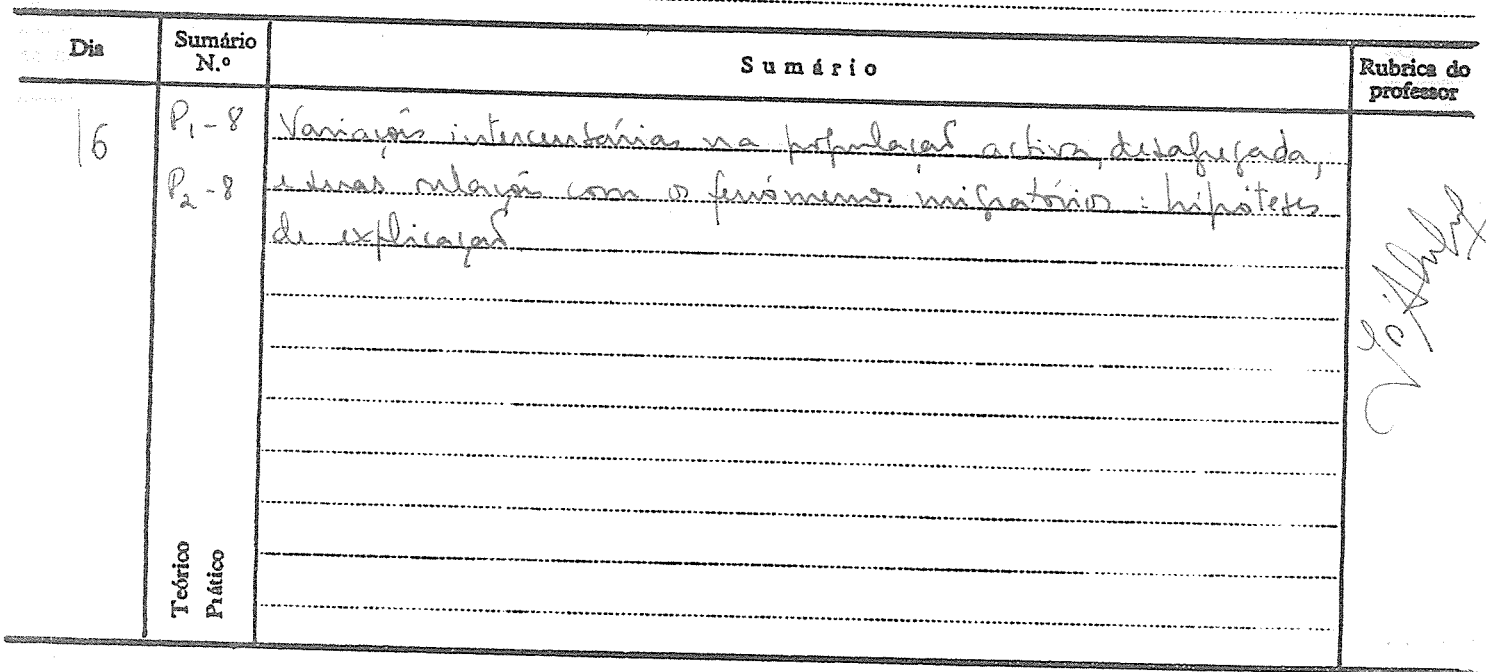 Dia
Sumário N.º
Sumário
Rubrica do professor
16
P₁-8
P₂-8
Variações intercensitárias na população activa, desagregada,
e suas relações com os fenómenos migratórios: hipóteses
de explicação
Teórico
Prático